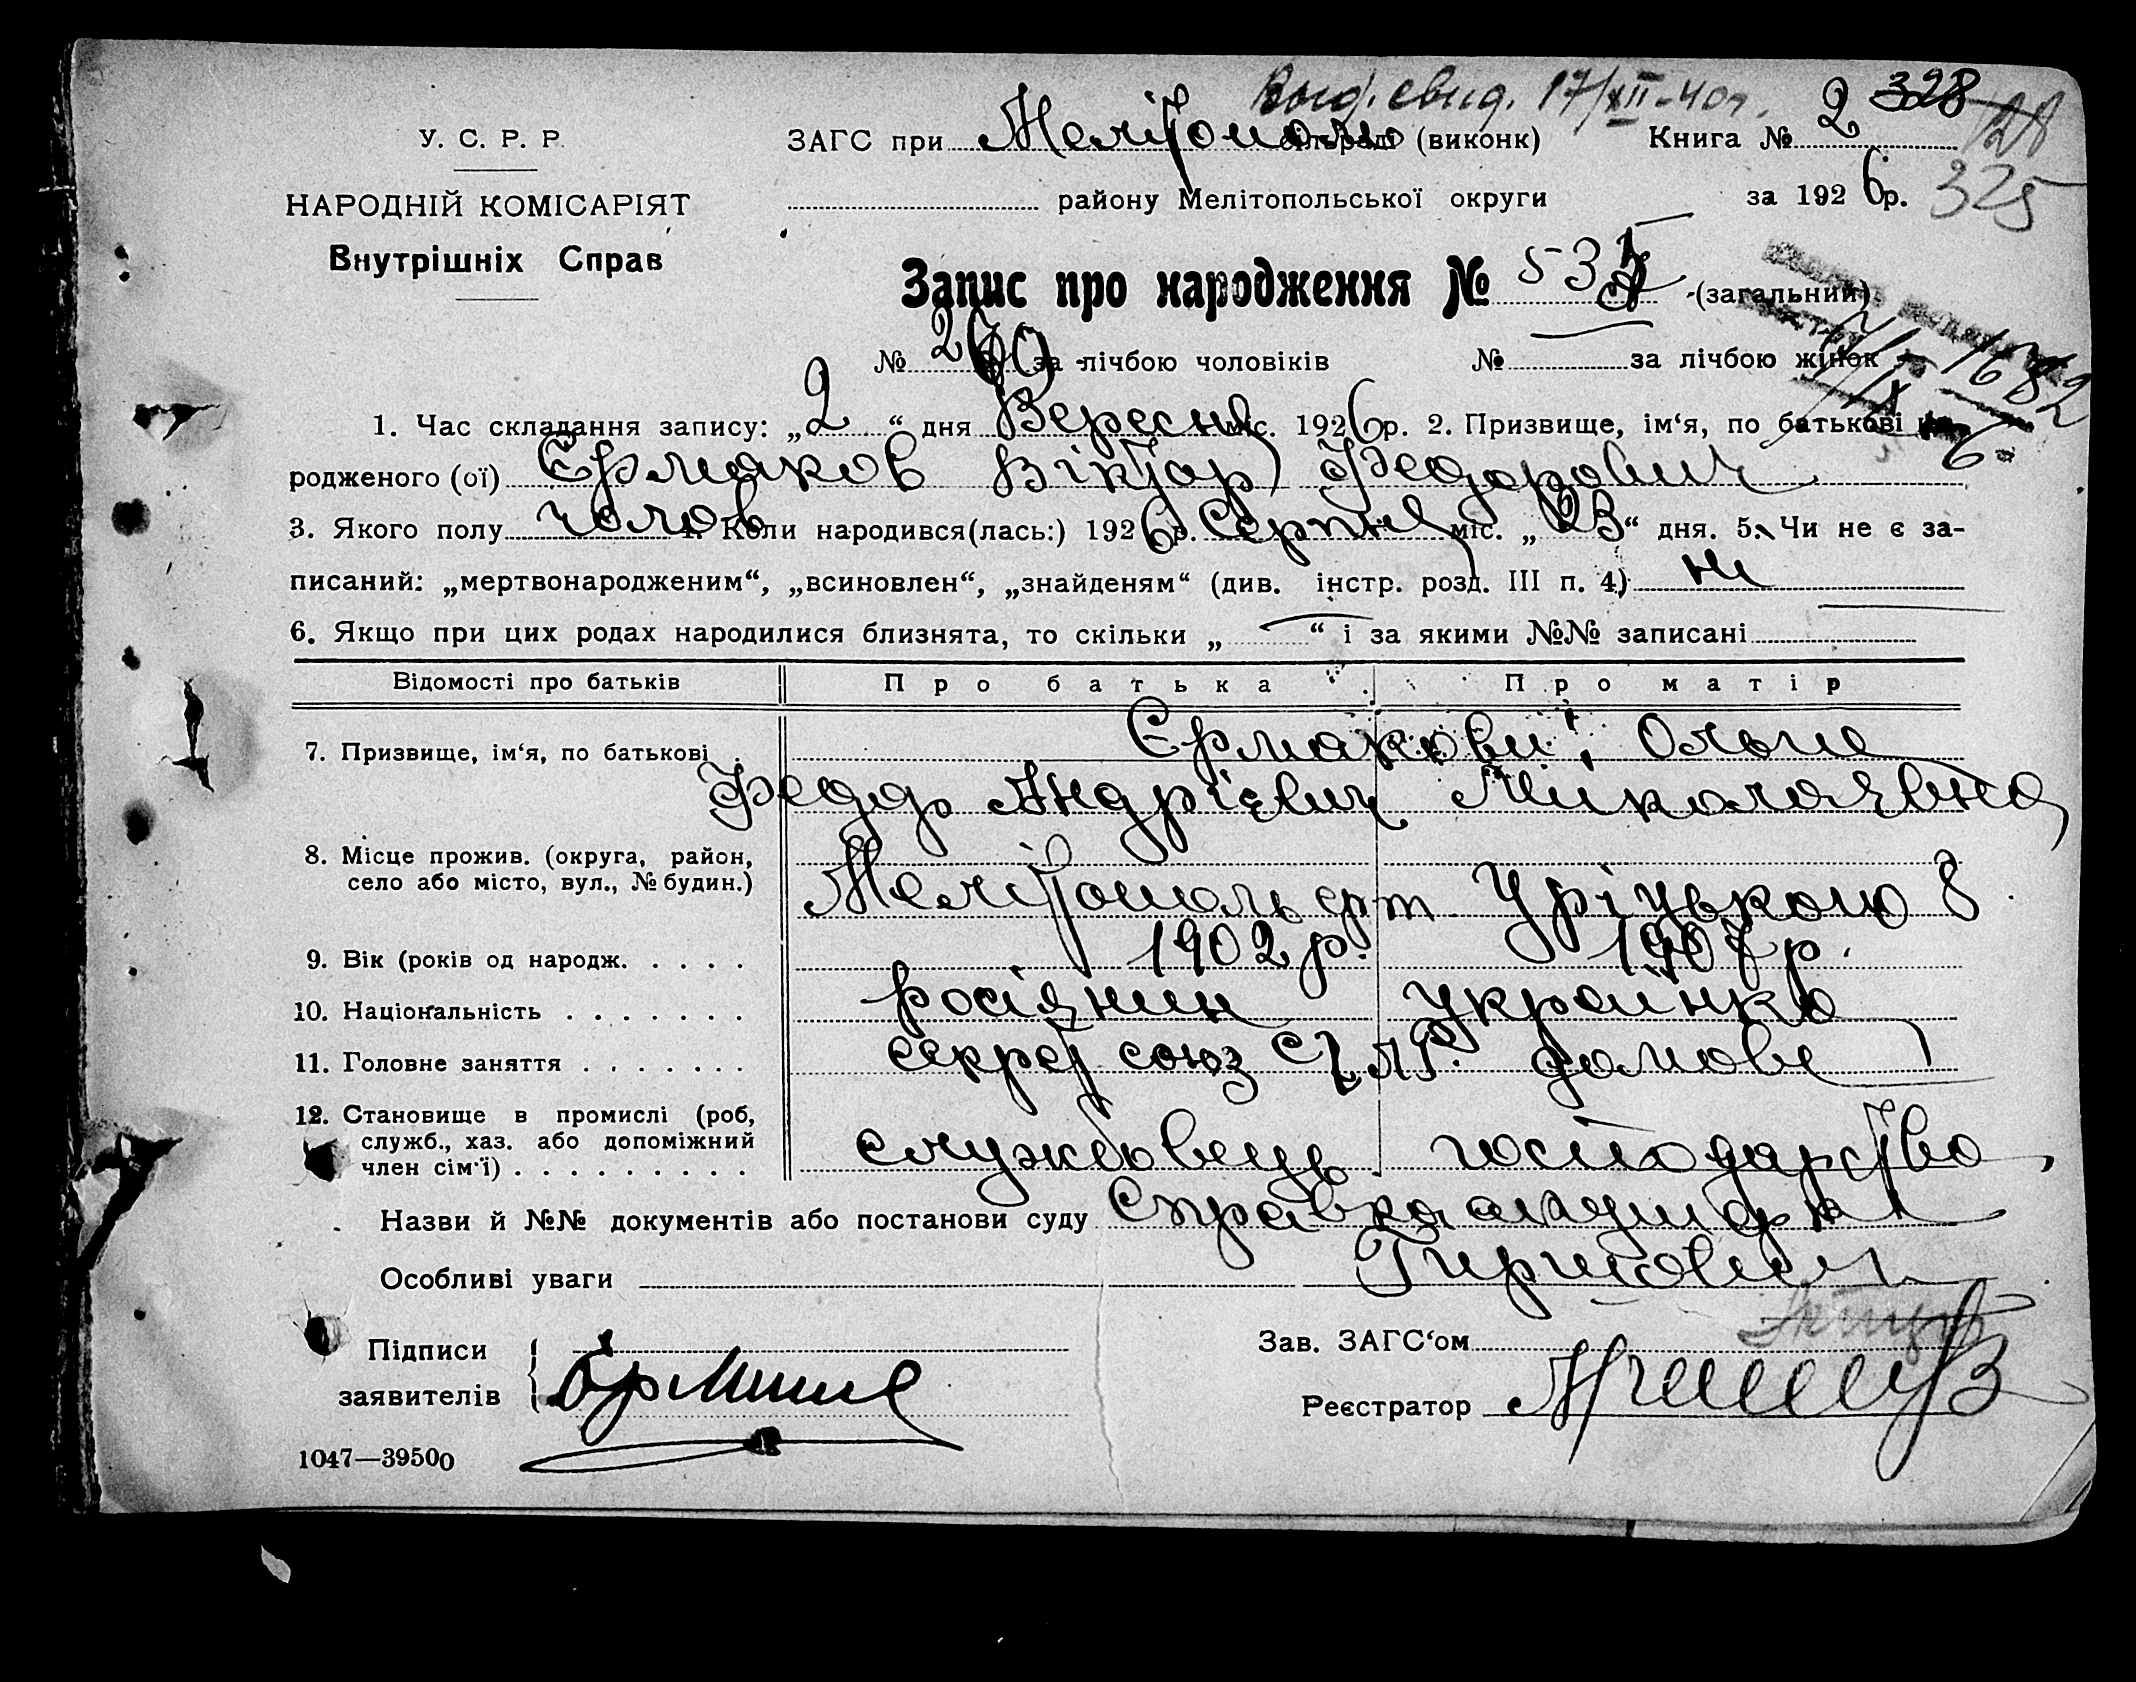 Выд. свид. 17/XII-40г.
У. С. Р. Р.
НАРОДНІЙ КОМІСАРІЯТ
Внутрішніх Справ
ЗАГС при Мелітополь сільраді (виконк) Книга № 2 328
128
району Мелітопольської округи за 1926 р. 325
Запис про народження № 535 (загальний)
№ 260 за лічбою чоловіків № за лічбою жінок
1682
1. Час складання запису: „2“ дня Вересня міс. 1926 р. 2. Призвище, ім‘я, по батькові на-
родженого (ої) Єрмаков Віктор Федорович
3. Якого полу чолов 4. Коли народився(лась:) 1926 р. Серпня міс. „23“ дня. 5. Чи не є за-
писаний: „мертвонародженим“, „всиновлен“, „знайденям“ (див. інстр. розд. III п. 4) ни
6. Якщо при цих родах народилися близнята, то скільки „ “ і за якими №№ записані
Відомості про батьків Про батька Про матір
7. Призвище, ім‘я, по батькові Єрмакови, Ольга
Федор Андрієвич Миколаявна
8. Місце прожив. (округа, район,
село або місто, вул., № будин.) Мелітополь Уріцького 8
9. Вік (років од народж. 1902 р. 1907 р.
10. Національність росіянин украинка
11. Головне заняття секрет союз домове
12. Становище в промислі (роб,
служб., хаз. або допоміжний
член сім‘ї) службовець господарство
Назви й №№ документів або постанови суду Справка акушерки
Особливі уваги
Підписи
заявителів
Зав. ЗАГС‘ом
Реєстратор
1047—39500